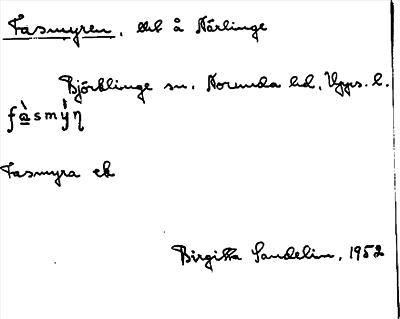 Fasmyren, ekt å Närlinge
Björklinge sn. Norunda hd, Upps. l.
fà̱smýη
Fasmyra ek
Birgitta Sandelin, 1952